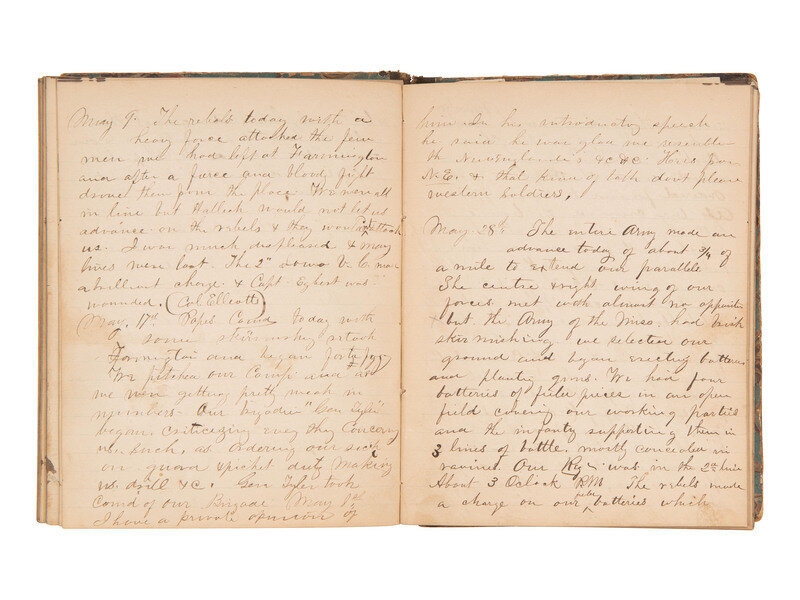 May 9. The rebels today with a
heavy force attacked the few
men we had left at Farmington
and after a fierce and bloody fight
drove them from the place. We were all
in line but Halleck would not let us
advance on the rebels & they wouldnt attack
us. I was much displeased & many
lives were lost. The 2" Iowa V. C. made
a brilliant charge & Capt. Egbert was
wounded. (Col Elliott)
May, 17th Popes Comd today with
some skirmishing retook
Farmington and began fortifying
We pitched our Camp and as
we were getting pretty weak in
numbers. Our brigadier "Gen Tyler"
began criticizing every thing Concerning
us. Such, as ordering our sick
on guard & picket duty making
us drill &C. Gen Tyler took
Comd of our Brigade May 1st
I have a private opinion of
him In his introductory speech
he said he was glad we resemble
the New Englanders &C &C. He is from
N. E. & that kind of talk dont please
western Soldiers.
May. 28th The entire Army made an
advance today of about 3/4 of
a mile to extend our parallels
The centre & right wing of our
forces met with almost no opposition
but the Army of the Miss. had brisk
skirmishing we selected our
ground and began erecting batteries
and planting guns. We had four
batteries of field pieces in an open
field covering our working parties
and the infantry supporting them in
3 lines of battle. mostly concealed in
ravines. Our Rgt. was in the 2nd line
About 3 Oclock P.M. The rebels made
a charge on our batteries which